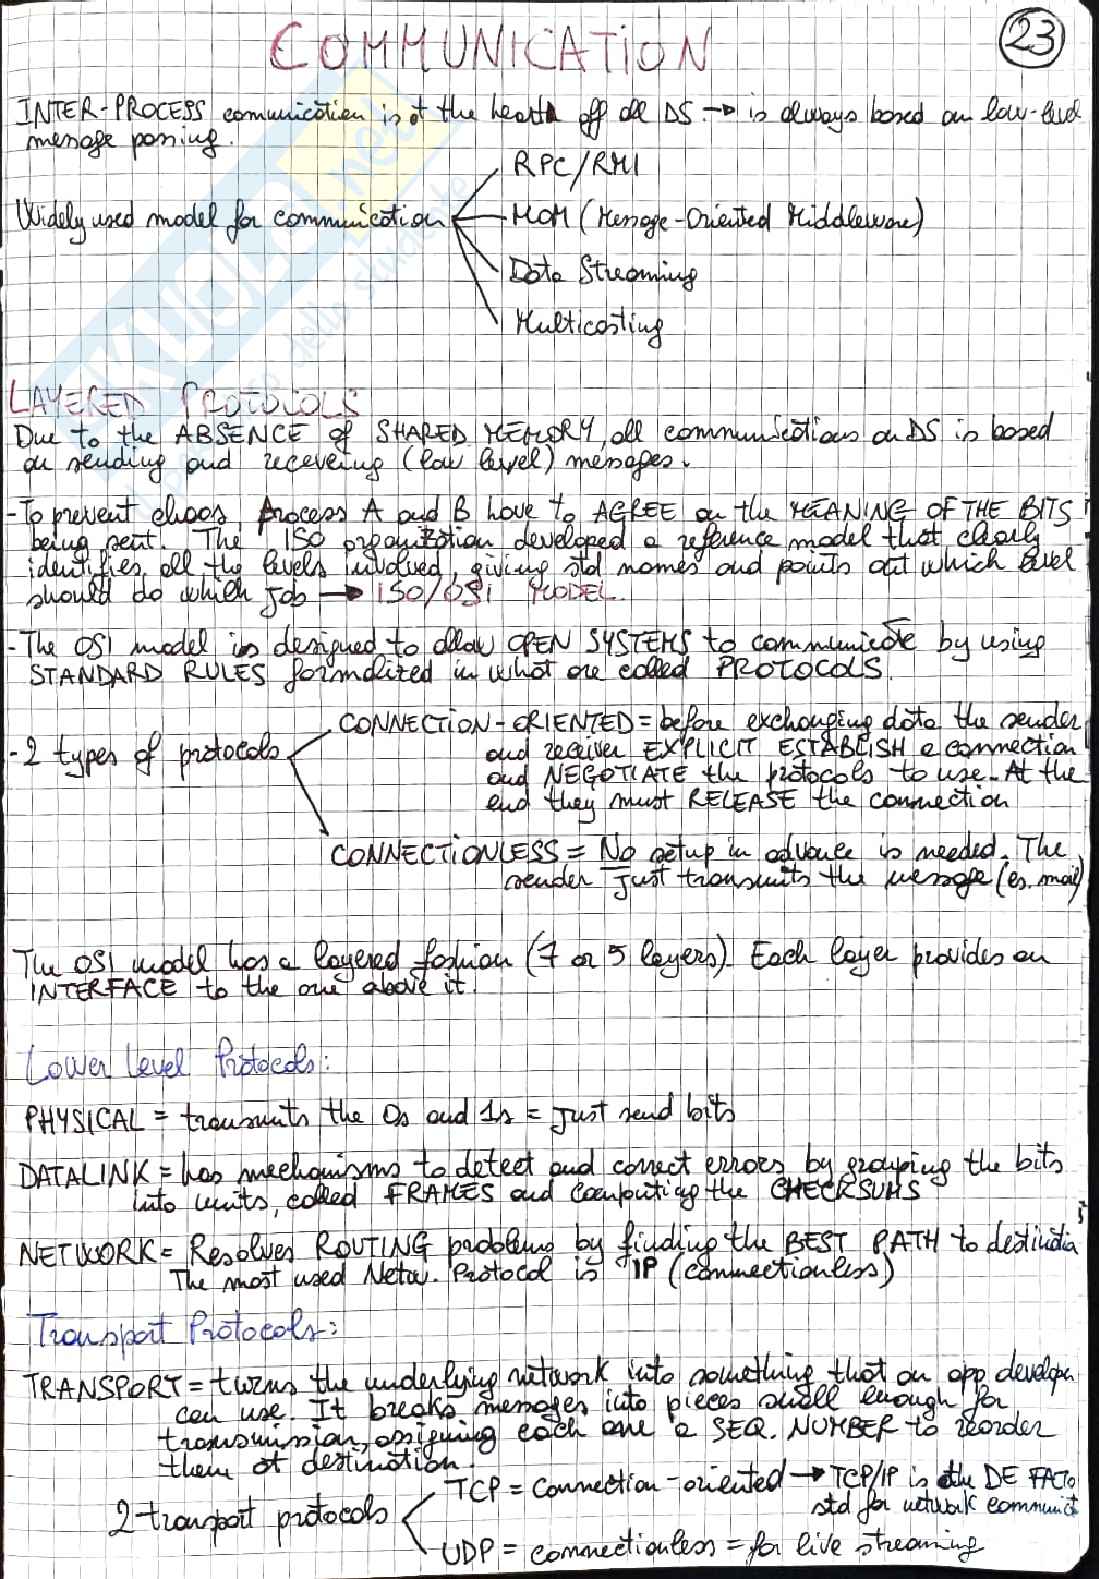 COMMUNICATION
23
INTER-PROCESS communication is at the heart off all DS → is always based on low-level
message passing.
RPC/RMI
Widely used model for communication
MOM (Message-Oriented Middleware)
Data Streaming
Multicasting
LAYERED PROTOCOLS
Due to the ABSENCE of SHARED MEMORY, all communications on DS is based
on sending and receveing (low level) messages.
- To prevent chaos, Process A and B have to AGREE on the MEANING OF THE BITS
being sent. The ISO organization developed a reference model that clearly
identifies all the levels involved, giving std names and points out which level
should do which job → ISO/OSI MODEL.
- The OSI model is designed to allow OPEN SYSTEMS to communicate by using
STANDARD RULES formalized in what are called PROTOCOLS.
CONNECTION-ORIENTED = before exchanging data the sender
- 2 types of protocols
and receiver EXPLICIT ESTABLISH a connection
and NEGOTIATE the protocols to use. At the
end they must RELEASE the connection
CONNECTIONLESS = No setup in advance is needed. The
sender just transmits the message (es. mail)
The OSI model has a layered fashion (7 or 5 layers). Each layer provides an
INTERFACE to the one above it.
Lower Level Protocols:
PHYSICAL = transmits the 0s and 1s = just send bits
DATALINK = has mechanisms to detect and correct errors by grouping the bits
into units, called FRAMES and computing the CHECKSUMS
NETWORK = Resolves ROUTING problems by finding the BEST PATH to destinatia
The most used Netw. Protocol is IP (connectionless)
Transport Protocols:
TRANSPORT = turns the underlying network into something that an app develope
can use. It breaks messages into pieces small enough for
transmission, assigning each one a SEQ. NUMBER to reorder
them at destination.
TCP = connection-oriented → TCP/IP is the DE FACTO
std for network communict
2 transport protocols
UDP = connectionless = for live streaming